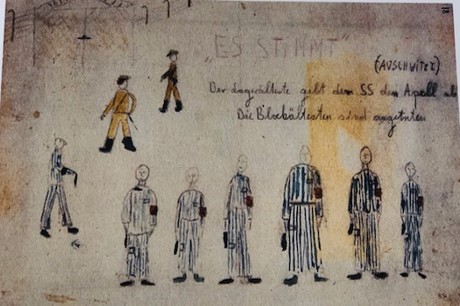 „ES STIMMT"
(AUSCHWITZ)
Der Lagerälteste gibt dem SS den Apell ab
Die Blockältesten sind angetreten